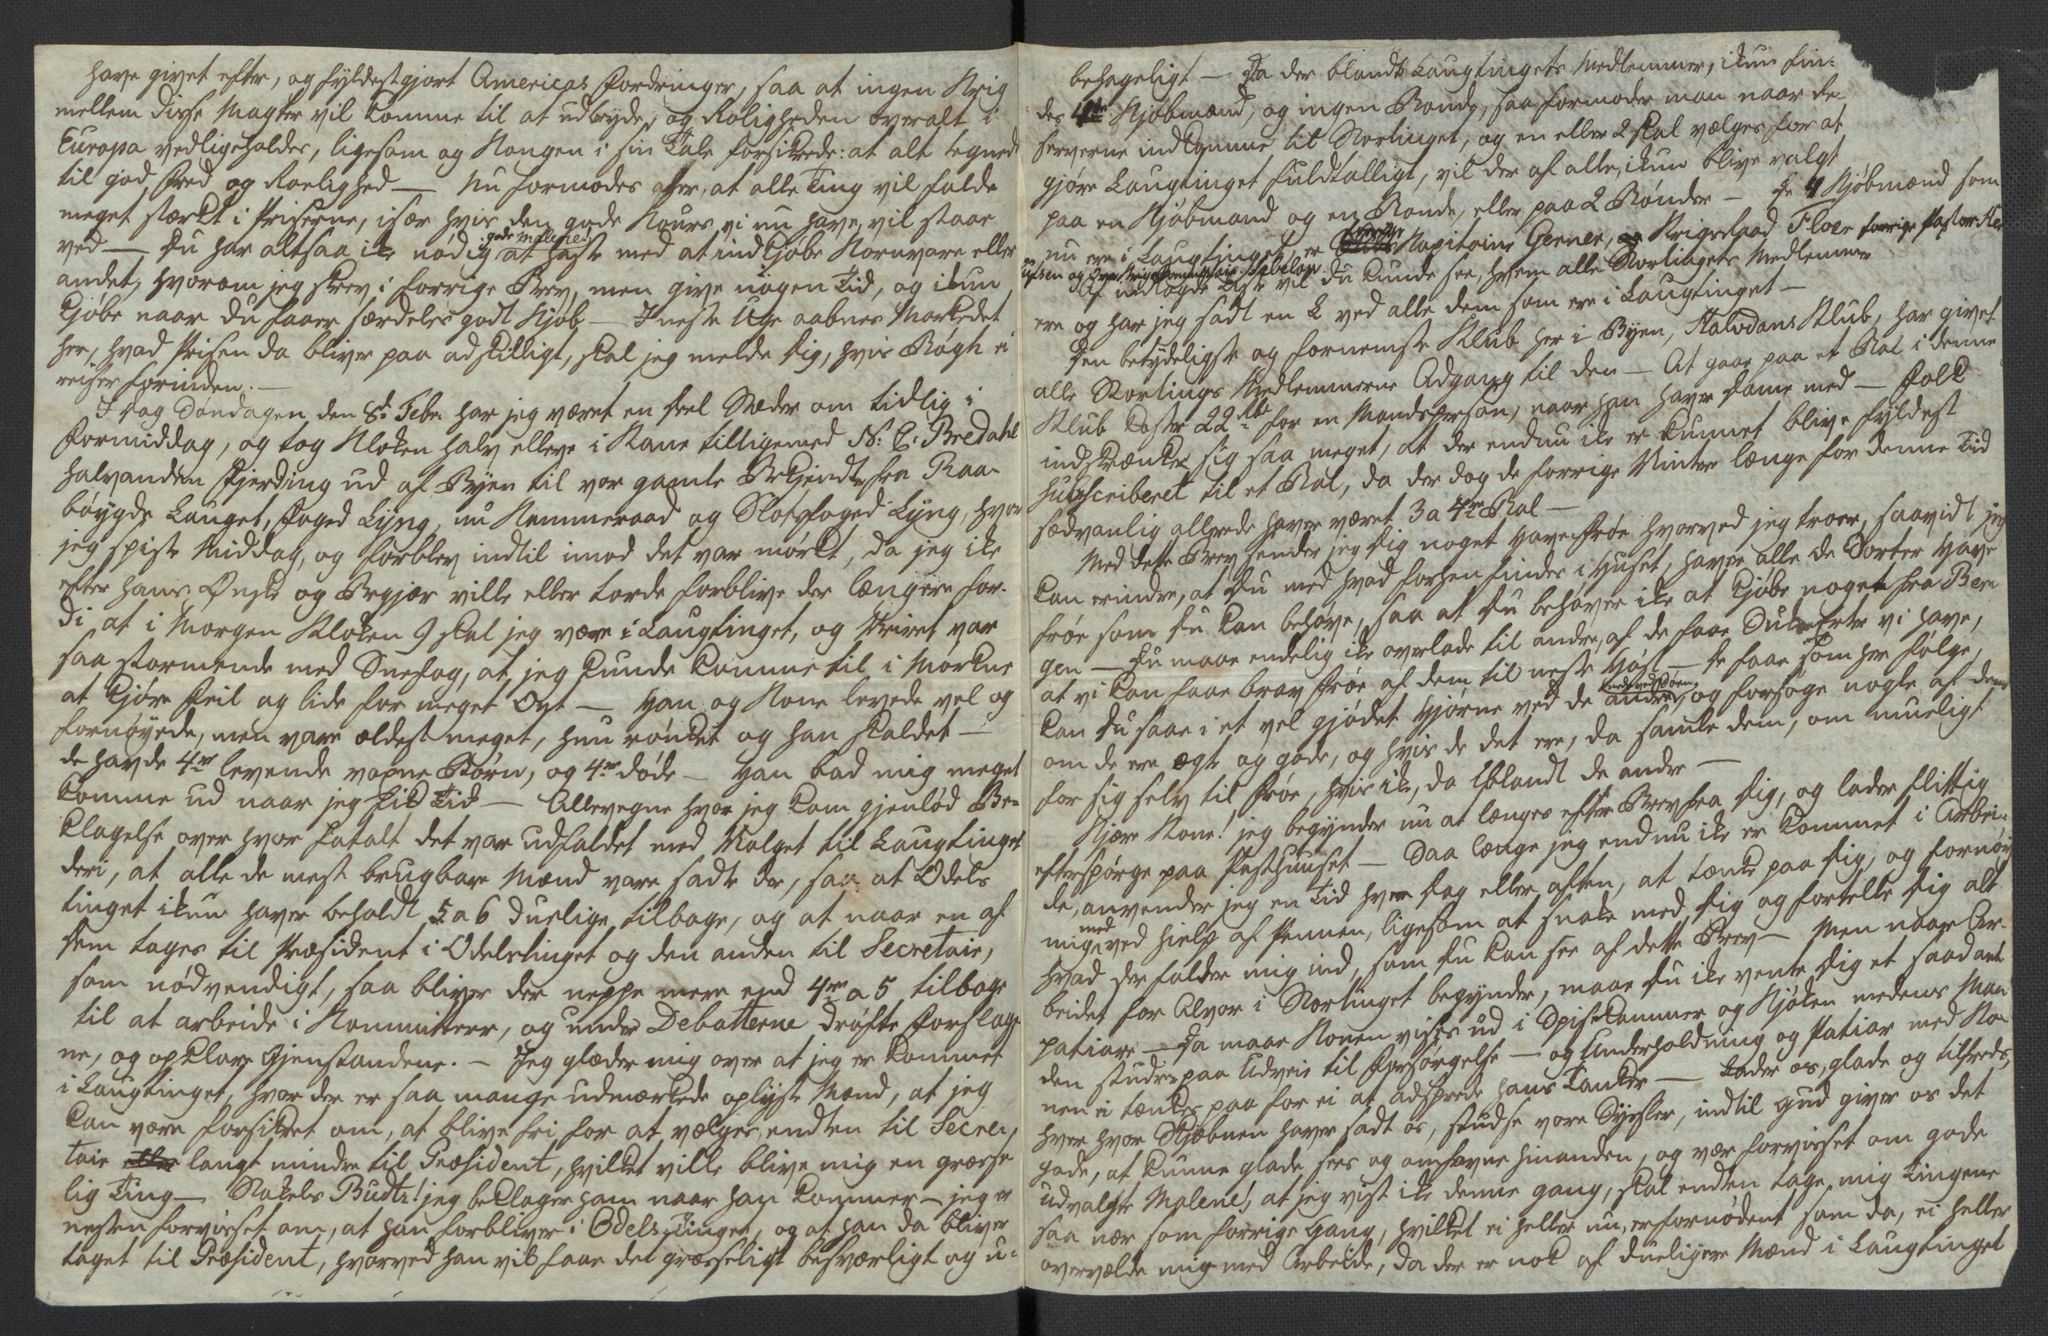 have givet efter, og fyldestgjort Americas Fordringer, saa at ingen Krig
mellem disse Magter vil komme til at udbryde, og Roligheden overalt i
Europa vedligeholdes, ligesom og Kongen i sin Tale forsikrede: at alt tegned
til god Fred og Roelighed — Nu formodes efter, at alle Ting vil falde
meget stærkt i Priserne, især hvis den gode Kours vi nu have, vil staae
ved — Du har altsaa ike nødig gode Malene at haste med at indkjøbe Kornvare eller
andet, hvorom jeg skrev i forrige Brev, men give nogen Tid, og ikun
kjøbe naar Du faaer særdeles godt Kjøb — I neste Uge aabnes Markedet
her, hvad Prisen da bliver paa adskilligt, skal jeg melde Dig, hvis Bagh ei
reiser forinden. —
I Dag Søndagen den 8de Febr. har jeg været en Deel Stæder om tidlig i
Formiddag, og tog Kloken halv elleve i Kane tilligemed N: C: Bredahl
halvanden Fjerding ud af Byen til vor gamle Bekjendte fra Raa-
bøygde Lauget, Foged Lyng, nu Kammeraad og Slotsfoged Lyng, hvor
jeg spiste Middag, og forblev indtil imod det var mørkt, da jeg ike
efter hans Ønske og Begjær ville eller torde forblive der længere for-
di at i Morgen Kloken 9 skal jeg være i Laugtinget, og Veiret var
saa stormende med Snefog, at jeg kunde komme til i Mørkne
at kjøre Feil og lide for meget Ont — Han og Kone levede vel og
fornøyede, men vare ældest meget, hun rønket og han skaldet —
de havde 4re levende voxne Børn, og 4re døde — Han bad mig meget
komme ud naar jeg fik Tid — Allevegne hvor jeg kom gjenlød Be-
klagelse over hvor fatalt det var udfaldet med Valget til Laugtinget
deri, at alle de mest brugbare Mænd vare sadte der, saa at Odels
tinget ikun haver beholdt 5 a 6 duelige tilbage, og at naar en af
dem tages til Præsident i Odelstinget og den anden til Secretair,
som nødvendigt, saa bliver der neppe mere end 4re a 5 tilbage
til at arbeide i Kommitteer, og under Debatterne drøfte Forslage
ne, og opklare Gjenstandene. — Jeg glæder mig over at jeg er kommet
i Laugtinget, hvor der er saa mange udmærkede oplyste Mænd, at jeg
kan være forsikret om, at blive fri for at vælges endten til Secre-
tair langt mindre til Præsident, hvilket ville blive mig en græsse
lig Ting — Stakels Budtz! jeg beklager ham naar han kommer — jeg er
nesten forvisset om, at han forbliver i Odels Tinget, og at han da bliver
taget til Præsident, hvorved han vil faae det græsseligt besværligt og u-
behageligt — Da der blandt Laugtingets Medlemmer, ikun fin-
des 4re Kjøbmænd, og ingen Bonde, saa formoder man naar de
serverne indkomme til Stortinget, og en eller 2 skal vælges for at
gjøre Laugtinget fuldtalligt, vil der af alle, ikun blive valgt
paa en Kjøbmand og en Bonde, eller paa 2 Bønder — De 4 Kjøbmænd som
nu ere i Laugtinget er Kapitaine Gerner, og Krigsraad Floer forrige Pastor
Af indlagde Liste vil Du kunde see, hvem alle Stortingets Medlemmer
ere og har jeg sadt en L ved alle dem som ere i Laugtinget —
Den betydeligste og fornemste Klub her i Byen, Halvdans Klub, har givet
alle Stortings Medlemmerne Adgang til den — At gaae paa et Bal i denne
Klub koster 22 Rbd for en Mandsperson, naar han haver Dame med — Folk
indskrænker sig saa meget, at der endnu ike er kunnet blive fyldest
subscriberet til et Bal, da der dog de forrige Vintre længe for denne Tid
sædvanlig allerede haver været 3 a 4re Bal —
Med dette Brev sender jeg Dig noget Havefrøe hvorved jeg troer, saavidt jeg
kan erindre, at Du med hvad forhen findes i Huset, haver alle de Sorter Have
frøe som Du kan behøve, saa at Du behøver ike at kjøbe noget fra Ber-
gen — Du maae endelig ike overlade til andre, af de faae Sukererter vi have,
at vi kan faae brav Frøe af dem til neste Høst — De faae som her følge,
kan Du saae i et vel gjødet Hjørne ved de andre, og forsøge nogle af dem
om de ere ægte og gode, og hvis de det ere, da samle dem, om mueligt
for sig selv til Frøe, hvis ike, da iblandt de andre —
Kjære Kone! jeg begynder nu at længes efter Brev fra Dig, og lader flittig
efterspørge paa Posthuuset — Saa længe jeg endnu ike er kommet i Arbei-
de, anvender jeg en Tid hver Dag eller Aften, at tænke paa Dig, og fornøy
mig med ved Hielp af Pennen, ligesom at snake med Dig og fortelle Dig alt
hvad der falder mig ind, som Du kan see af dette Brev — Men naar Ar-
beidet for Alvor i Stortinget begynder, maae Du ike vente Dig et saadant
patiar — Da maae Konen vises ud i Spisekammer og Kjøken medens Man
den studere paa Udveie til Forsørgelse — og Underholdning og Patiar med Ko-
nen ei tænkes paa for ei at adsprede hans Tanker — Lader os, glade og tilfreds,
hver hvor Skjæbnen haver sadt os, studse vore Sysler, indtil Gud giver os det
gode, at kunne glade sees og omfavne hinanden, og vær forvisset om gode
udvalgte Malene!, at jeg vist ike denne gang, skal endten tage mig Tingene
saa nær som forrige Gang, hvilket ei heller nu, er fornødent som da, ei heller
overvælde mig med Arbeide, da der er nok af dueligere Mænd i Laugtinget